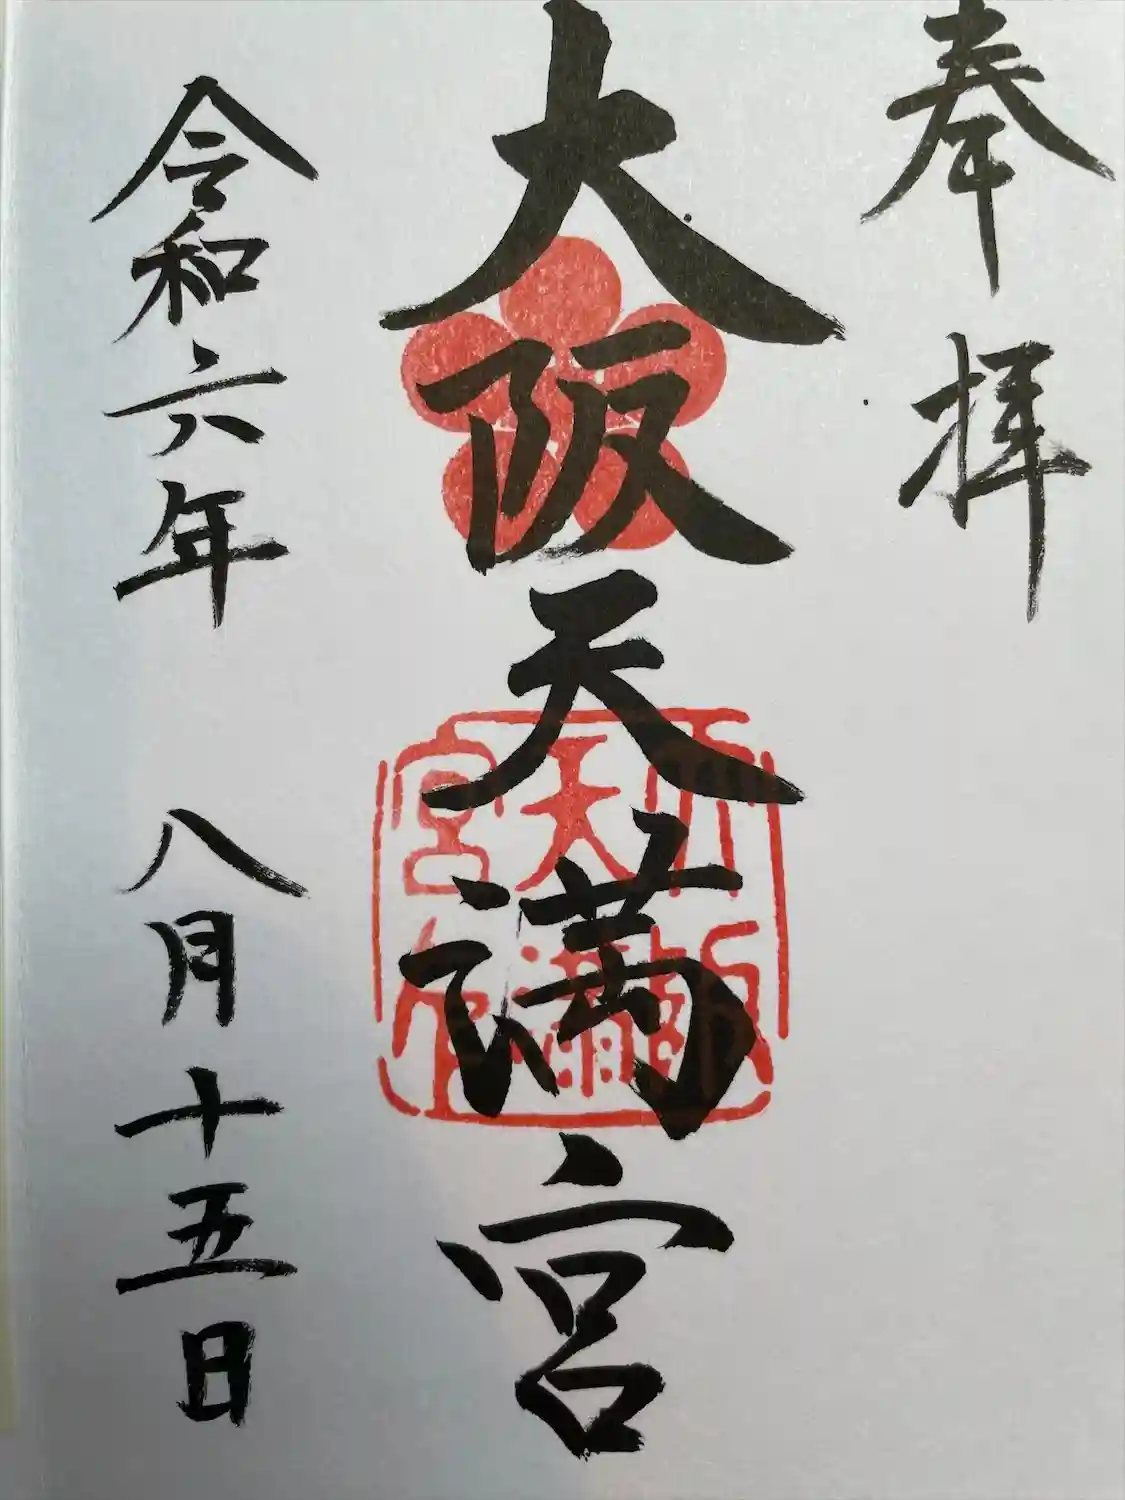 奉拝
大阪天満宮
令和六年 八月十五日
大阪
天満
宮